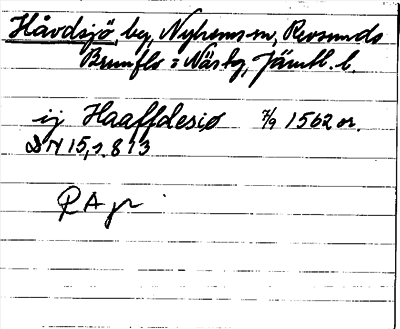 Håvdsjö, by, Nyhems sn, Revsunds
Brunflo o Näs tg, Jämtl. l.
ij Haaffdesiø 7/9 1562 or.
DN 15, s. 813
RA pr